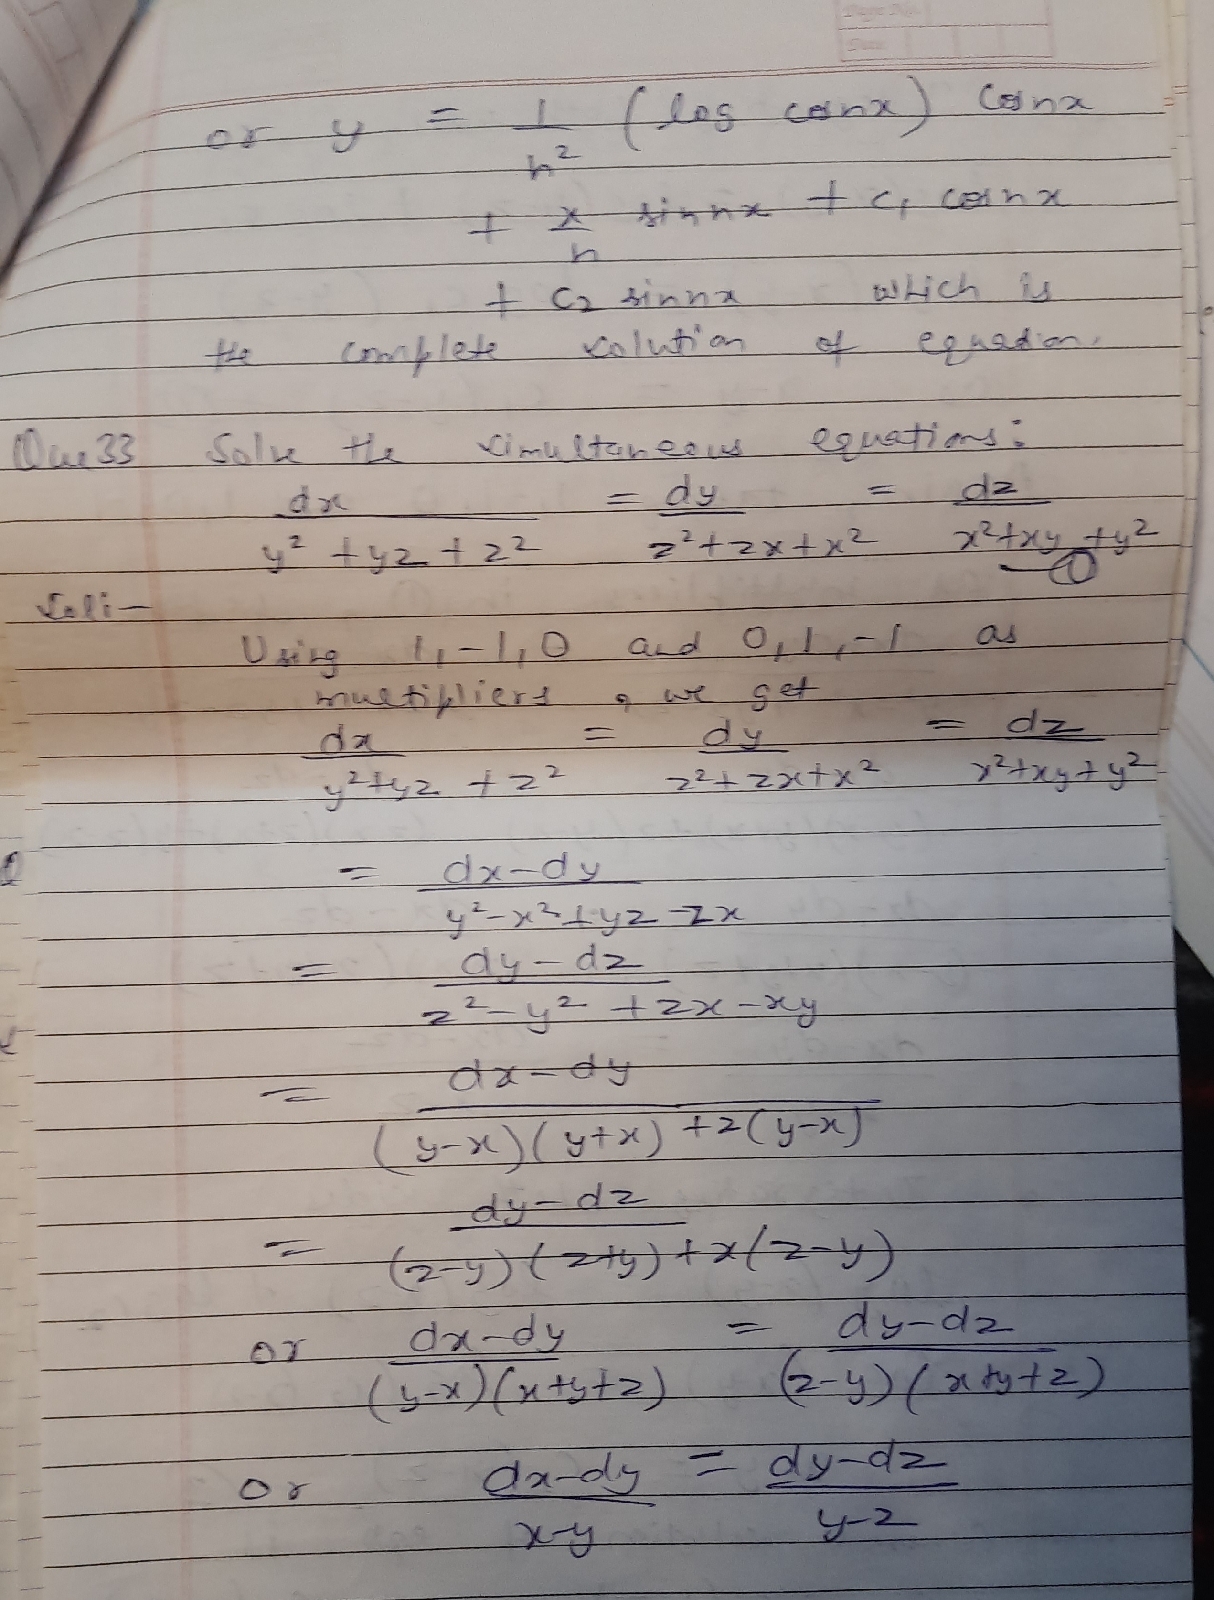 or y = 1/n² (log cosnx) cosnx
+ x/n sinnx + c₁ cosnx
+ c₂ sinnx which is
the complete solution of equation.
Que 33 Solve the simultaneous equations:
dx/(y²+yz+z²) = dy/(z²+zx+x²) = dz/(x²+xy+y²) —①
Sol:-
Using 1,-1,0 and 0,1,-1 as
multipliers, we get
dx/(y²+yz+z²) = dy/(z²+zx+x²) = dz/(x²+xy+y²)
= (dx-dy)/(y²-x²+yz-zx)
= (dy-dz)/(z²-y²+zx-xy)
= (dx-dy)/((y-x)(y+x)+z(y-x))
= (dy-dz)/((z-y)(z+y)+x(z-y))
or (dx-dy)/((y-x)(x+y+z)) = (dy-dz)/((z-y)(x+y+z))
or (dx-dy)/(x-y) = (dy-dz)/(y-z)